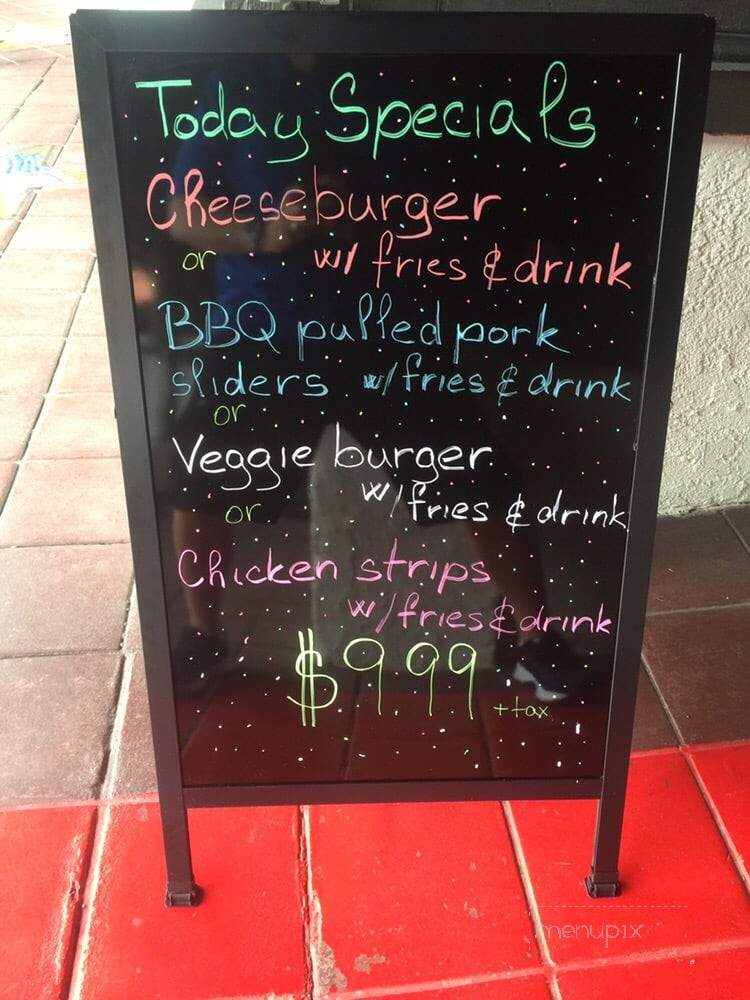 Today Specials
Cheeseburger
or w/ fries & drink
BBQ pulled pork
sliders w/ fries & drink
or
Veggie burger
w/ fries & drink
or
Chicken strips
w/ fries & drink
$9.99 + tax
menupix